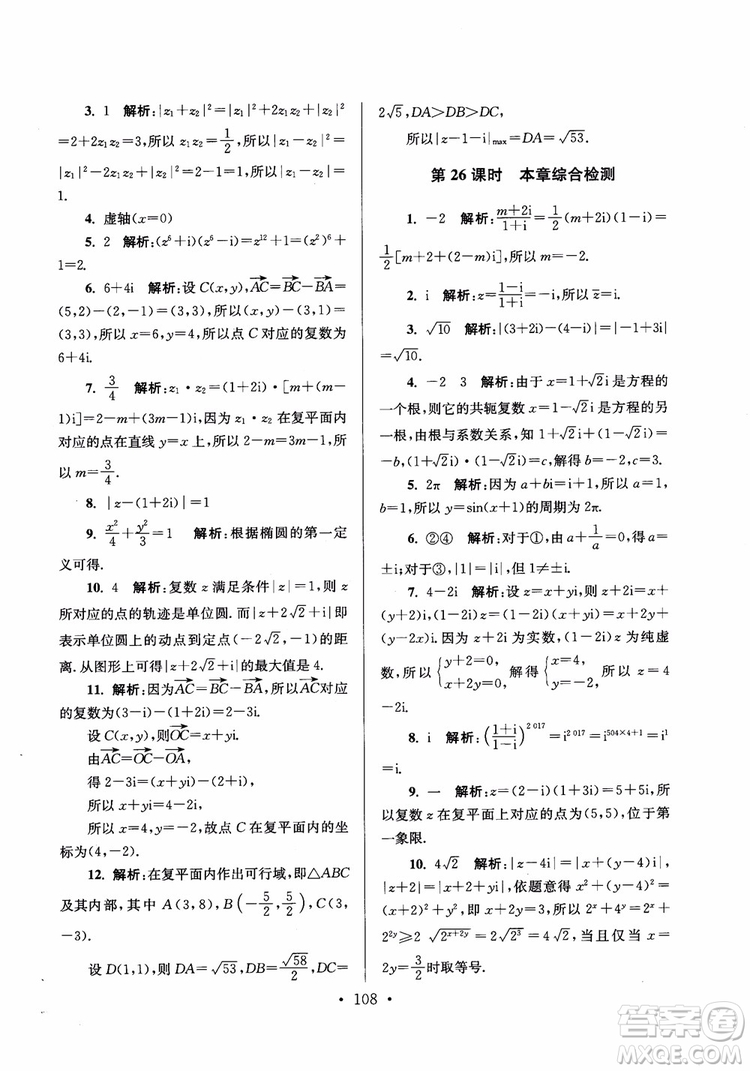 3. 1 解析:|z₁+z₂|²=|z₁|²+2z₁z₂+|z₂|²
=2+2z₁z₂=3,所以 z₁z₂=1/2,所以|z₁-z₂|²=
|z₁|²-2z₁z₂+|z₂|²=2-1=1,所以|z₁-z₂|=
1.
4. 虚轴(x=0)
5. 2 解析:(z⁶+i)(z⁶-i)=z¹²+1=(z²)⁶+
1=2.
6. 6+4i 解析:设 C(x,y),AC→=BC→-BA→=
(5,2)-(2,-1)=(3,3),所以(x,y)-(3,1)=
(3,3),所以 x=6,y=4,所以点 C 对应的复数为
6+4i.
7. 3/4 解析:z₁·z₂=(1+2i)·[m+(m-
1)i]=2-m+(3m-1)i,因为 z₁·z₂ 在复平面内
对应的点在直线 y=x 上,所以 2-m=3m-1,所
以 m=3/4.
8. |z-(1+2i)|=1
9. x²/4+y²/3=1 解析:根据椭圆的第一定
义可得.
10. 4 解析:复数 z 满足条件|z|=1,则 z
所对应的点的轨迹是单位圆.而|z+2√2+i|即
表示单位圆上的动点到定点(-2√2,-1)的距
离.从图形上可得|z+2√2+i|的最大值是4.
11. 解析:因为AC→=BC→-BA→,所以AC→对应
的复数为(3-i)-(1+2i)=2-3i.
设 C(x,y),则OC→=x+yi.
由AC→=OC→-OA→
得 2-3i=(x+yi)-(2+i),
所以 x+yi=4-2i,
所以 x=4,y=-2,故点 C 在复平面内的坐
标为(4,-2).
12. 解析:在复平面内作出可行域,即△ABC
及其内部,其中 A(3,8),B(-5/2,5/2),C(3,
-3).
设 D(1,1),则 DA=√53,DB=√58/2,DC=
2√5,DA>DB>DC,
所以|z-1-i|max=DA=√53.
第 26 课时 本章综合检测
1. -2 解析:(m+2i)/(1+i)=1/2(m+2i)(1-i)=
1/2[m+2+(2-m)i],所以 m=-2.
2. i 解析:z=(1-i)/(1+i)=-i,所以z̄=i.
3. √10 解析:|(3+2i)-(4-i)|=|-1+3i|
=√10.
4. -2 3 解析:由于 x=1+√2i 是方程的
一个根,则它的共轭复数 x=1-√2i 是方程的另
一根,由根与系数关系,(1+√2i)+(1-√2i)=
-b,(1+√2i)(1-√2i)=c,所以 b=-2,c=3.
5. 2π 解析:因为 a+bi=1+i,所以 a=1,
b=1,所以 y=sin(x+1)的周期为 2π.
6. ②④ 解析:对于①,由 a+1/a=0,得 a=
±i;对于③,|1|=|i|,但 1≠±i.
7. 4-2i 解析:设 z=x+yi,则 z+2i=x+
(y+2)i,(1-2i)z=(1-2i)(x+yi)=(x+2y)+
(y-2x)i.因为 z+2i 为实数,(1-2i)z 为纯虚
数,所以{y+2=0, x+2y=0,解得{x=4, y=-2,所以 z=4
-2i.
8. i 解析:((1+i)/(1-i))^2 017=i^2 017=i^504×4+1
=i.
9. 一 解析:z=(2-i)(1+3i)=5+5i,所
以复数 z 在复平面上对应的点为(5,5),位于第
一象限.
10. 4√2 解析:|z-4i|=|x+(y-4)i|,
|z+2|=|(x+2)+yi|,依题意得 x²+(y-4)²=
(x+2)²+y²,即 x+2y=3,所以 2ˣ+4ʸ=2ˣ+
2²ʸ≥2√2^(x+2y)=2√2³=4√2,当且仅当 x=
2y=3/2时取等号.
·108·
答案圈
MXQE.COM